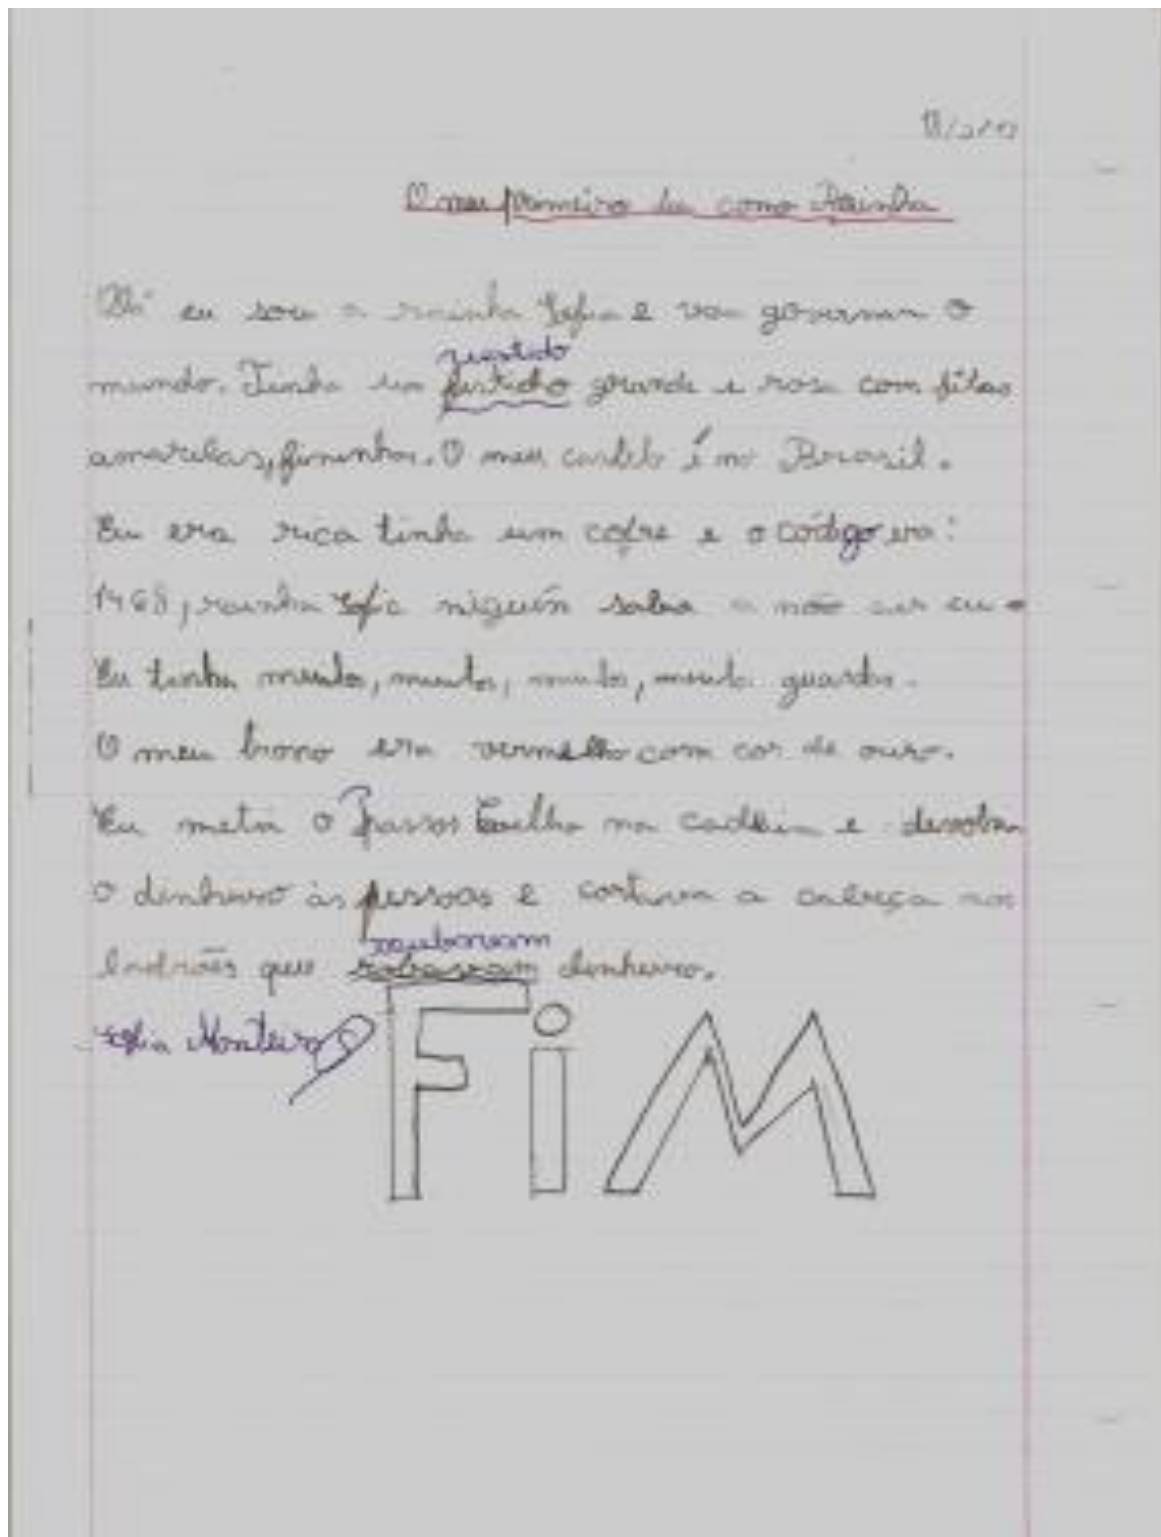 O meu primeiro dia como Rainha
Olá eu sou a rainha Sofia e vou governar o
vestido
mundo. Tinha um grande e rosa com fitas
amarelas, fininhas. O meu castelo é no Brasil.
Eu era rica tinha um cofre e o código era:
rainha Sofia niguém sabia a não ser eu.
Eu tinha muitos, muitos, muitos, muitos guardas.
O meu trono era vermelho com cor de ouro.
Eu metia o Passos Coelho na cadeia e devolvia
o dinheiro às pessoas e cortava a cabeça aos
roubavam
ladrões que robavam dinheiro.
Sofia Monteiro
FiM